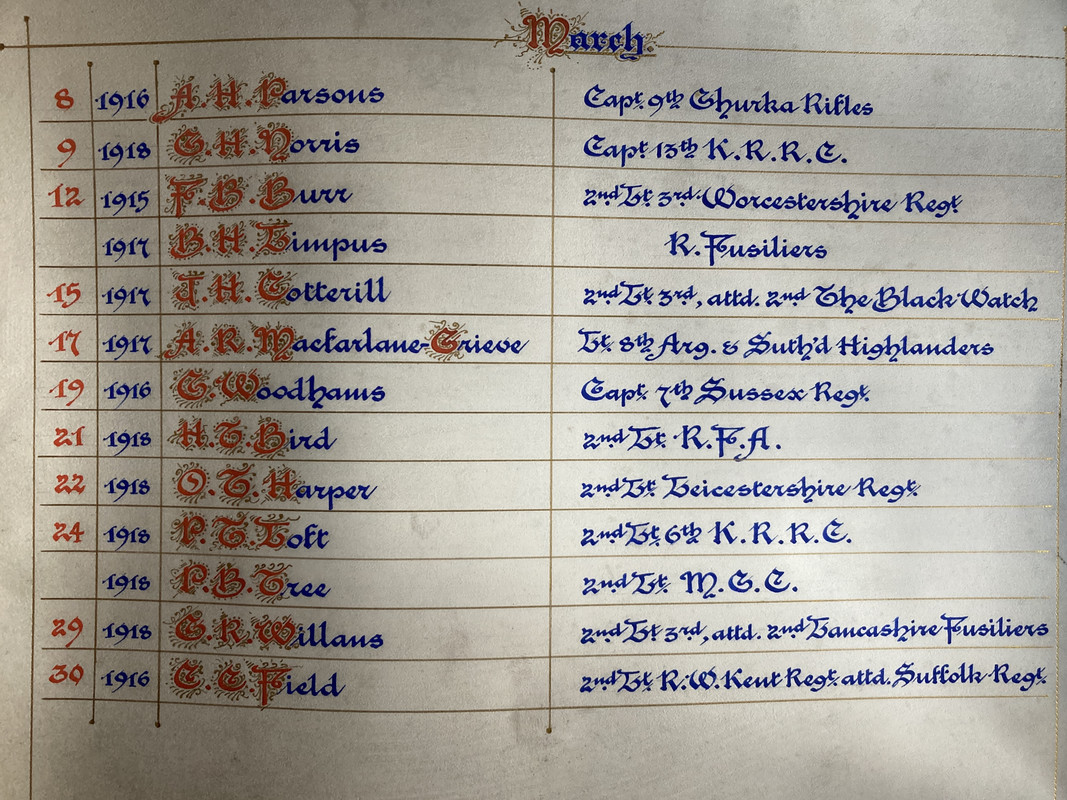 March
8 1916 A. H. Parsons Capt. 9th Ghurka Rifles
9 1918 G. H. Norris Capt. 13th K.R.R.C.
12 1915 F. B. Burr 2nd Lt. 3rd. Worcestershire Regt.
1917 B. H. Limpus R. Fusiliers
15 1917 J. H. Cotterill 2nd Lt. 3rd, attd. 2nd The Black Watch
17 1917 A. R. Macfarlane-Grieve Lt. 8th Arg. & Suth'd Highlanders
19 1916 G. Woodhams Capt. 7th Sussex Regt.
21 1918 H. T. Bird 2nd Lt. R.F.A.
22 1918 O. T. Harper 2nd Lt. Leicestershire Regt.
24 1918 P. T. Loft 2nd Lt. 6th K.R.R.C.
1918 P. B. Tree 2nd Lt. M.G.C.
29 1918 G. R. Willans 2nd Lt 3rd, attd. 2nd Lancashire Fusiliers
30 1916 C. E Field 2nd Lt. R.W. Kent Regt. attd. Suffolk Regt.